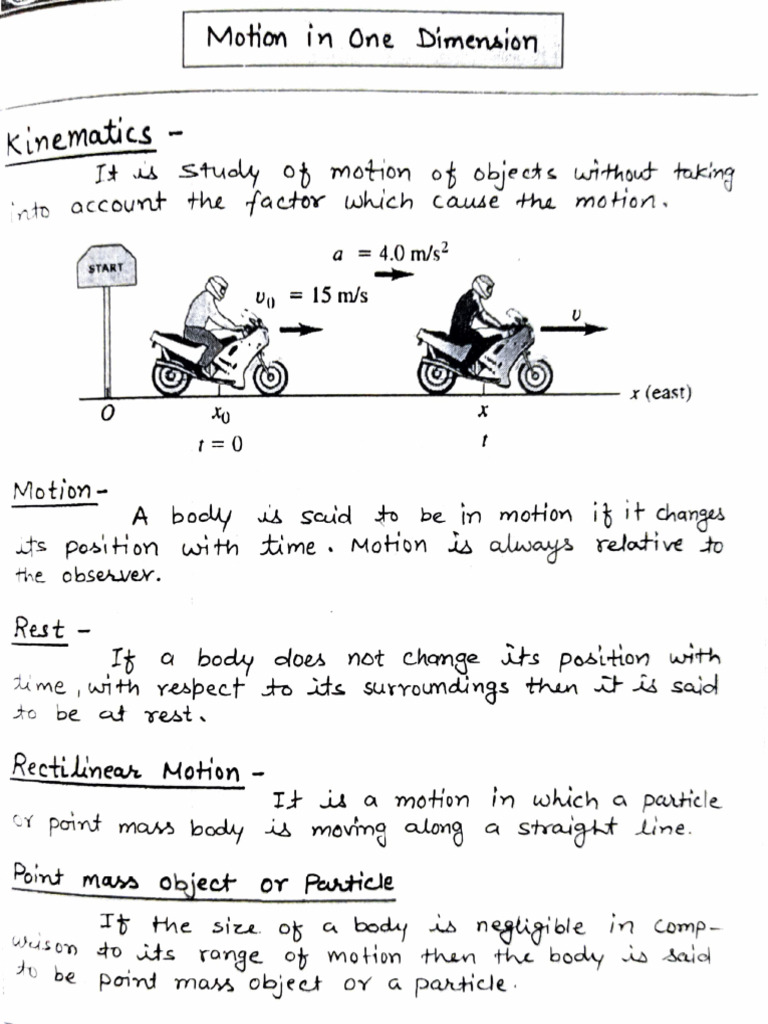 Motion in One Dimension
Kinematics -
It is study of motion of objects without taking
into account the factor which cause the motion.
a = 4.0 m/s²
START
υ₀ = 15 m/s
υ
x (east)
O
x₀
x
t = 0
t
Motion -
A body is said to be in motion if it changes
its position with time. Motion is always relative to
the observer.
Rest -
If a body does not change its position with
time, with respect to its surroundings then it is said
to be at rest.
Rectilinear Motion -
It is a motion in which a particle
or point mass body is moving along a straight line.
Point mass object or Particle
If the size of a body is negligible in comp-
arison to its range of motion then the body is said
to be point mass object or a particle.